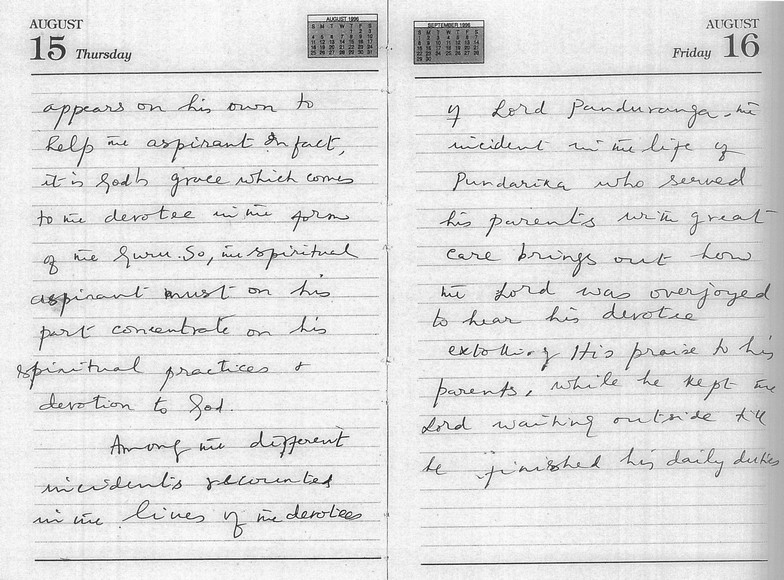 AUGUST
15 Thursday
AUGUST 1996
appears on his own to
help the aspirant. In fact,
it is God's grace which comes
to the devotee in the form
of the Guru. So, the spiritual
aspirant must on his
part concentrate on his
spiritual practices &
devotion to God.
Among the different
incidents recounted
in the lives of the devotees
SEPTEMBER 1996
AUGUST
Friday 16
of Lord Panduranga, the
incident in the life of
Pundarika who served
his parents with great
care brings out how
the Lord was overjoyed
to hear his devotee
extolling His praise to his
parents, while he kept the
Lord waiting outside till
he finished his daily duties